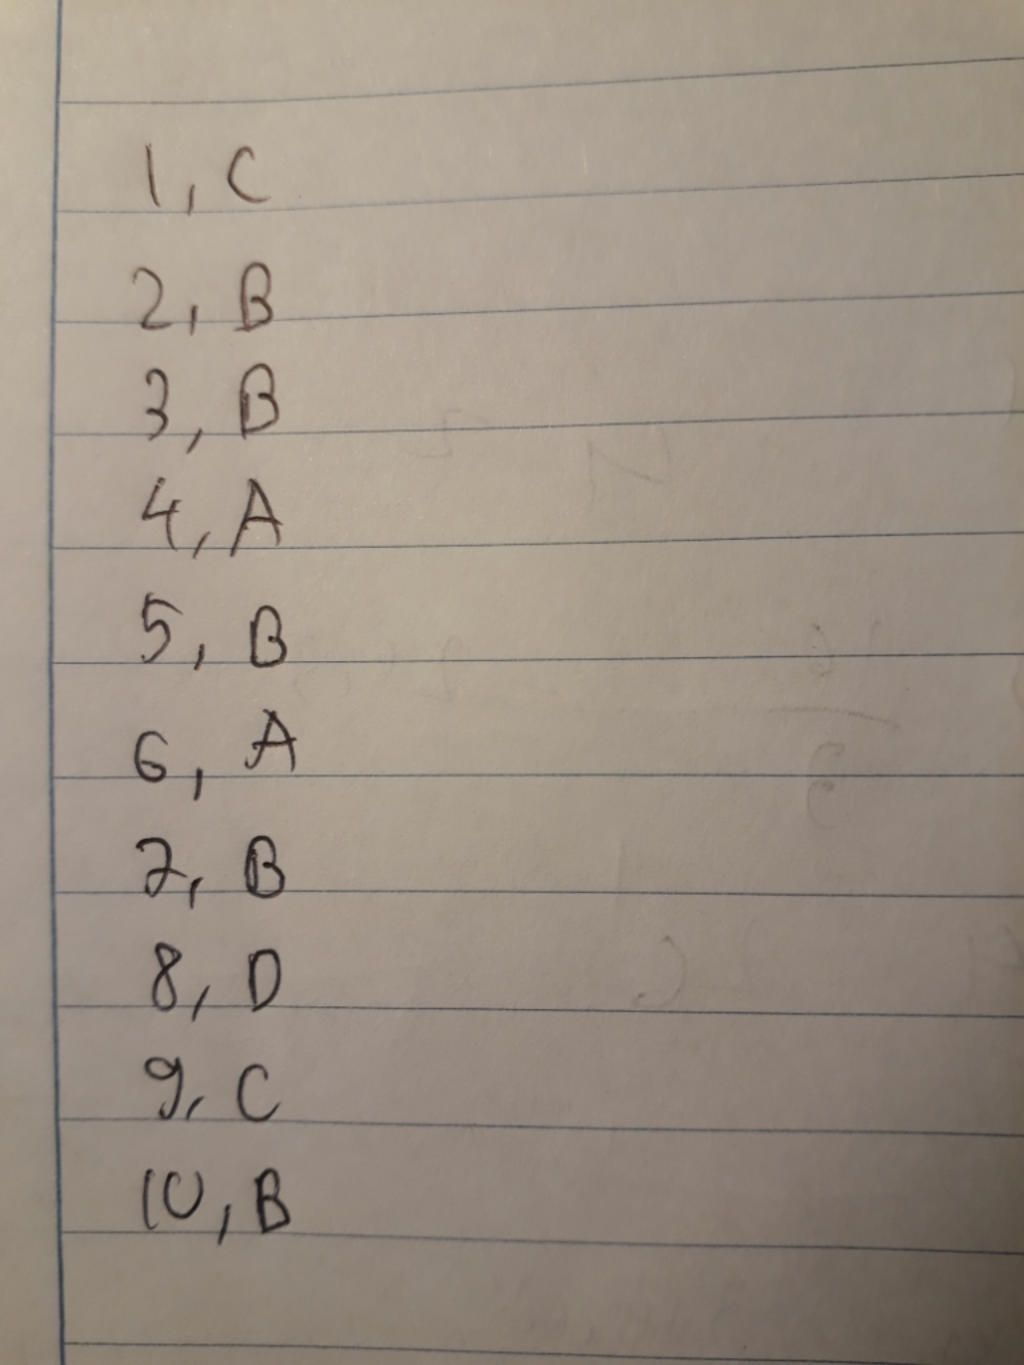 1, C
2, B
3, B
4, A
5, B
6, A
7, B
8, D
9, C
10, B